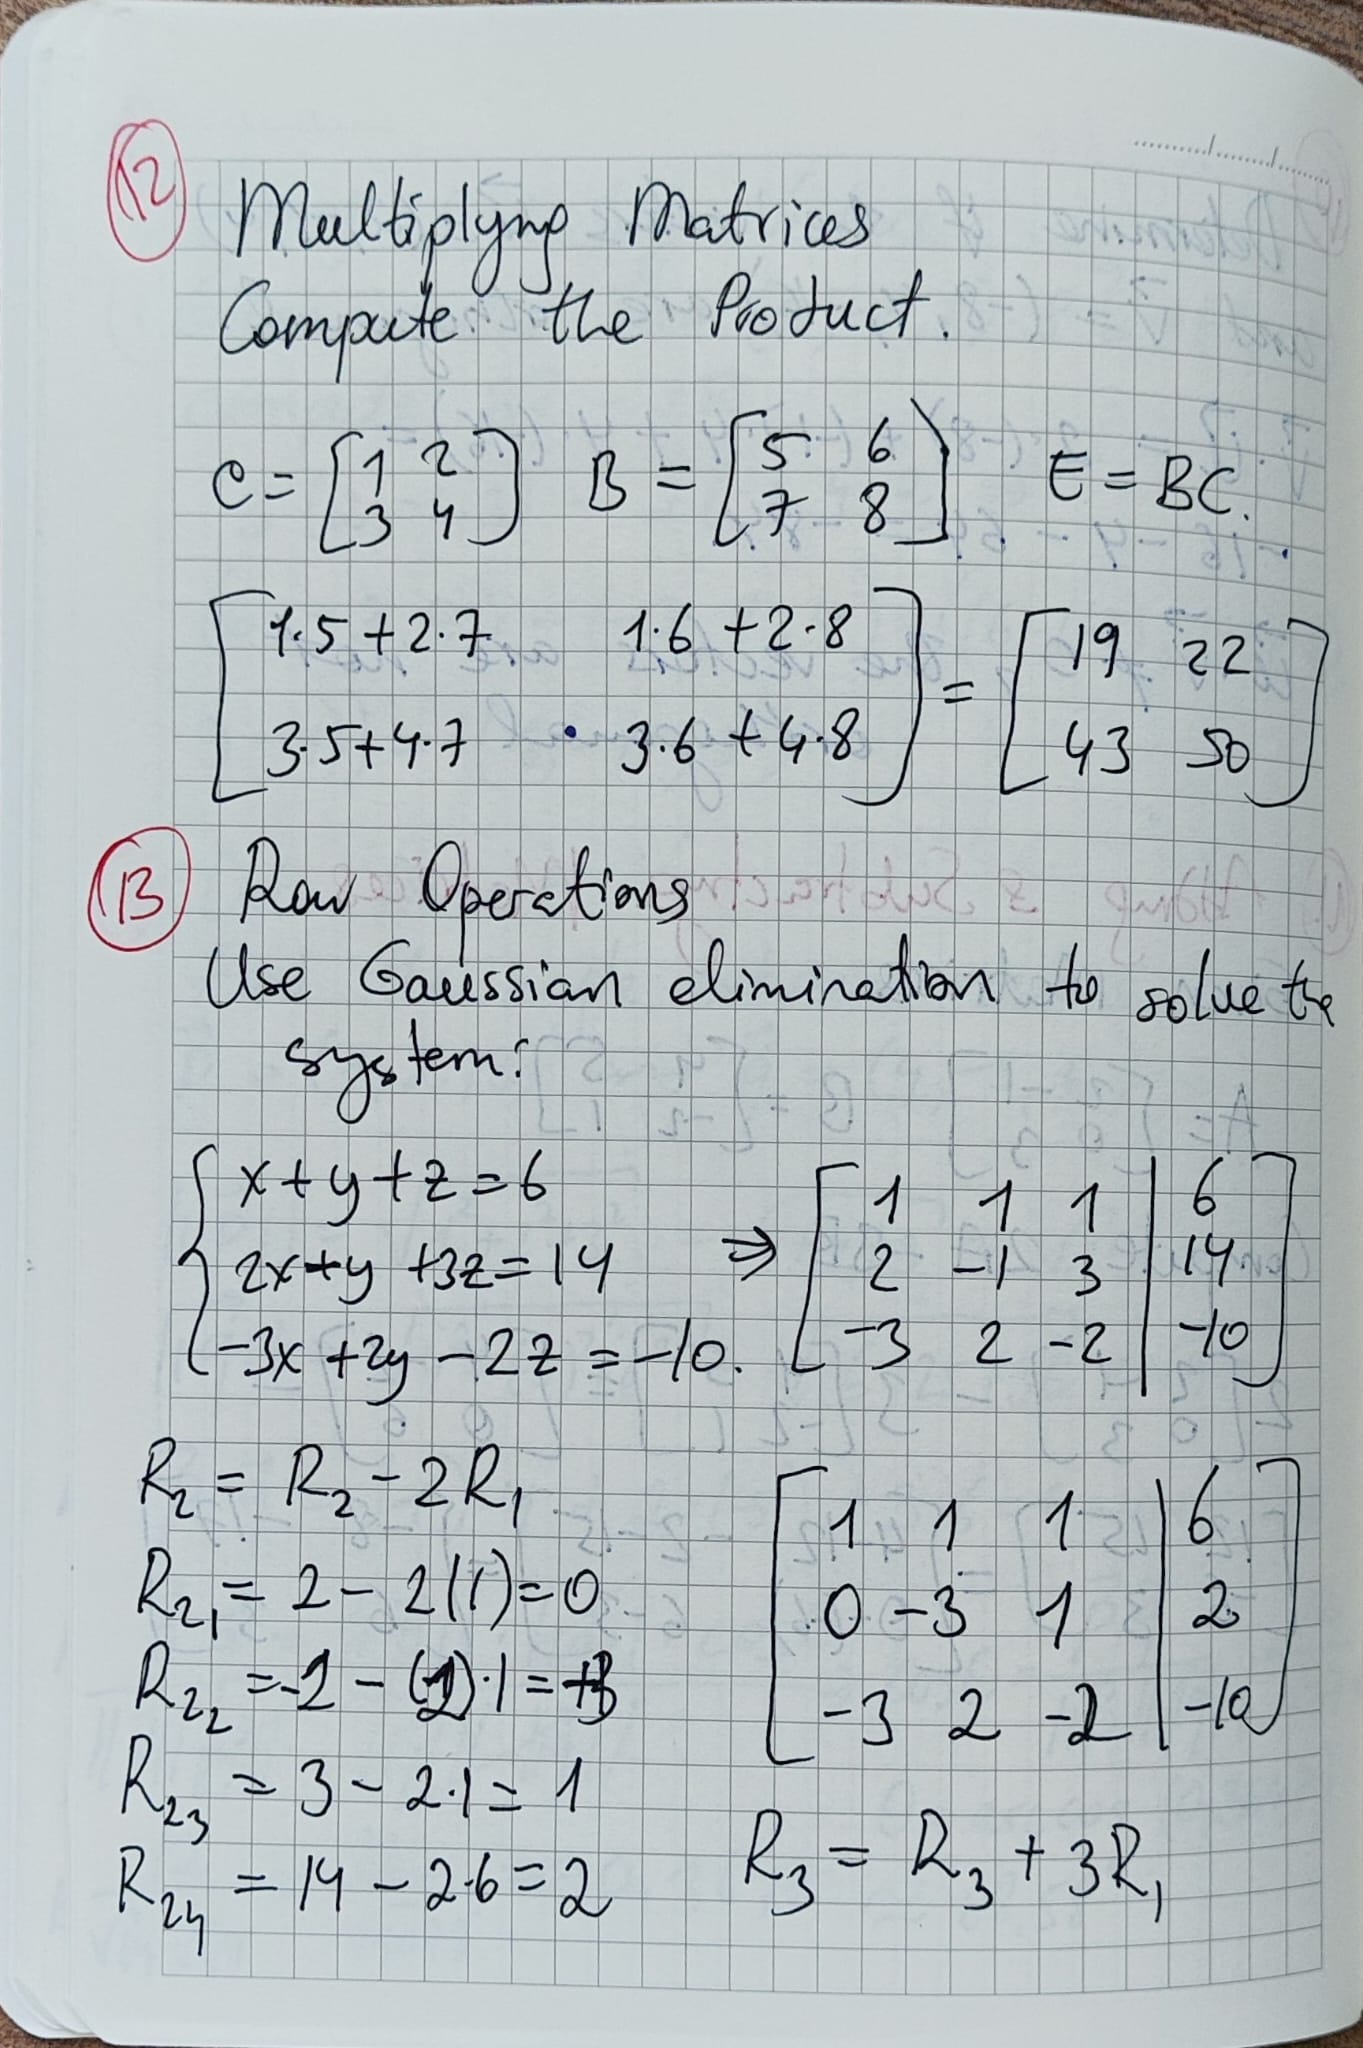 12
Multiplyng Matrices
Compute the Product.
C = [1 2; 3 4] B = [5 6; 7 8] E = BC.
[1·5+2·7 1·6+2·8; 3·5+4·7 3·6+4·8] = [19 22; 43 50]
13
Row Operations
Use Gaussian elimination to solve the
system:
x+y+z=6
2x+y+3z=14
-3x+2y-2z=-10.
⇒ [1 1 1 | 6; 2 -1 3 | 14; -3 2 -2 | -10]
R₂ = R₂ - 2R₁
R₂₁ = 2 - 2(1) = 0
R₂₃ = 3 - 2·1 = 1
R₂₄ = 14 - 2·6 = 2
[1 1 1 | 6; 0 -3 1 | 2; -3 2 -2 | -10]
R₃ = R₃ + 3R₁